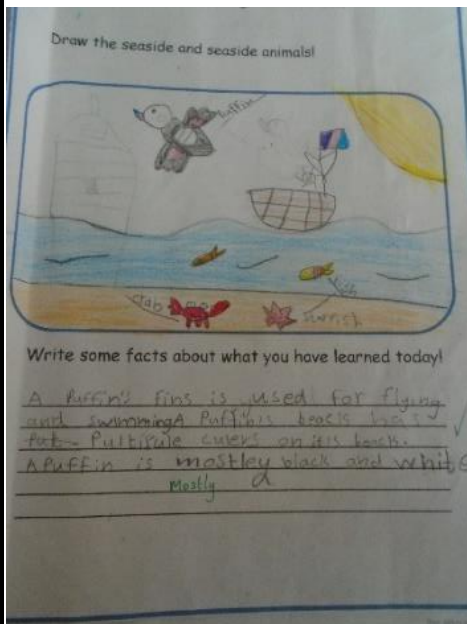 Draw the seaside and seaside animals!
Puffin
crab
fish
starfish
Write some facts about what you have learned today!
A Puffin's fins is used for flying
and swimming A Puffin's beack has
Pultipule culers on it is beack.
A Puffin is mostley black and white
Mostly